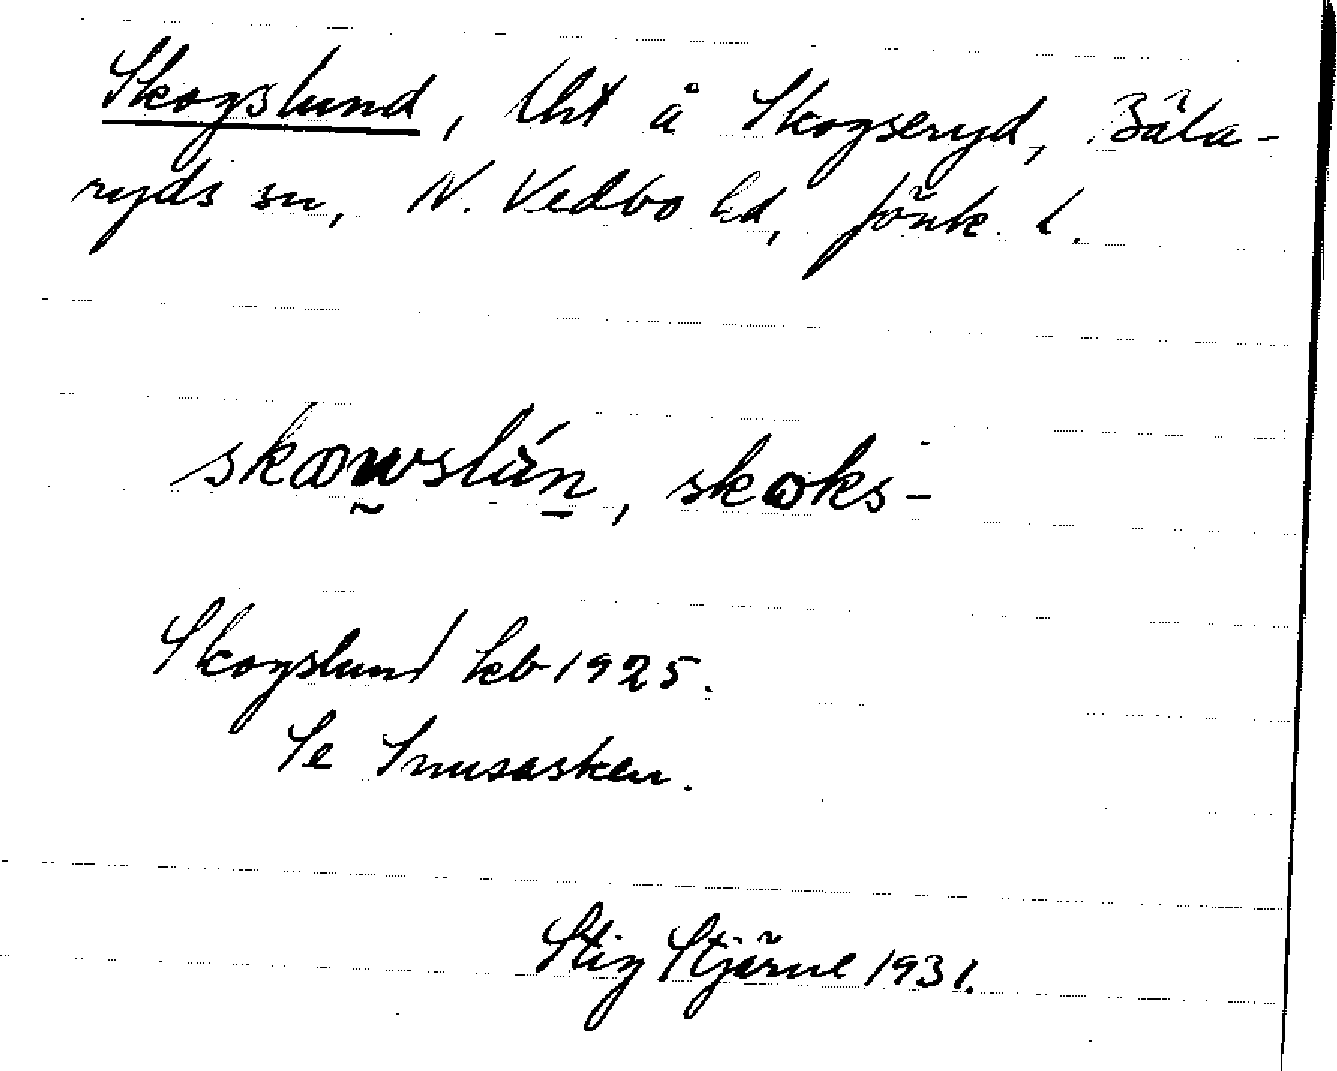 Skogslund, lht å Skogseryd, Bäla-
ryds sn, N. Vedbo hd, Jönk. l.
skowslún, skoks-
Skogslund kb 1925.
Se Snusasken.
Stig Stjärne 1931.